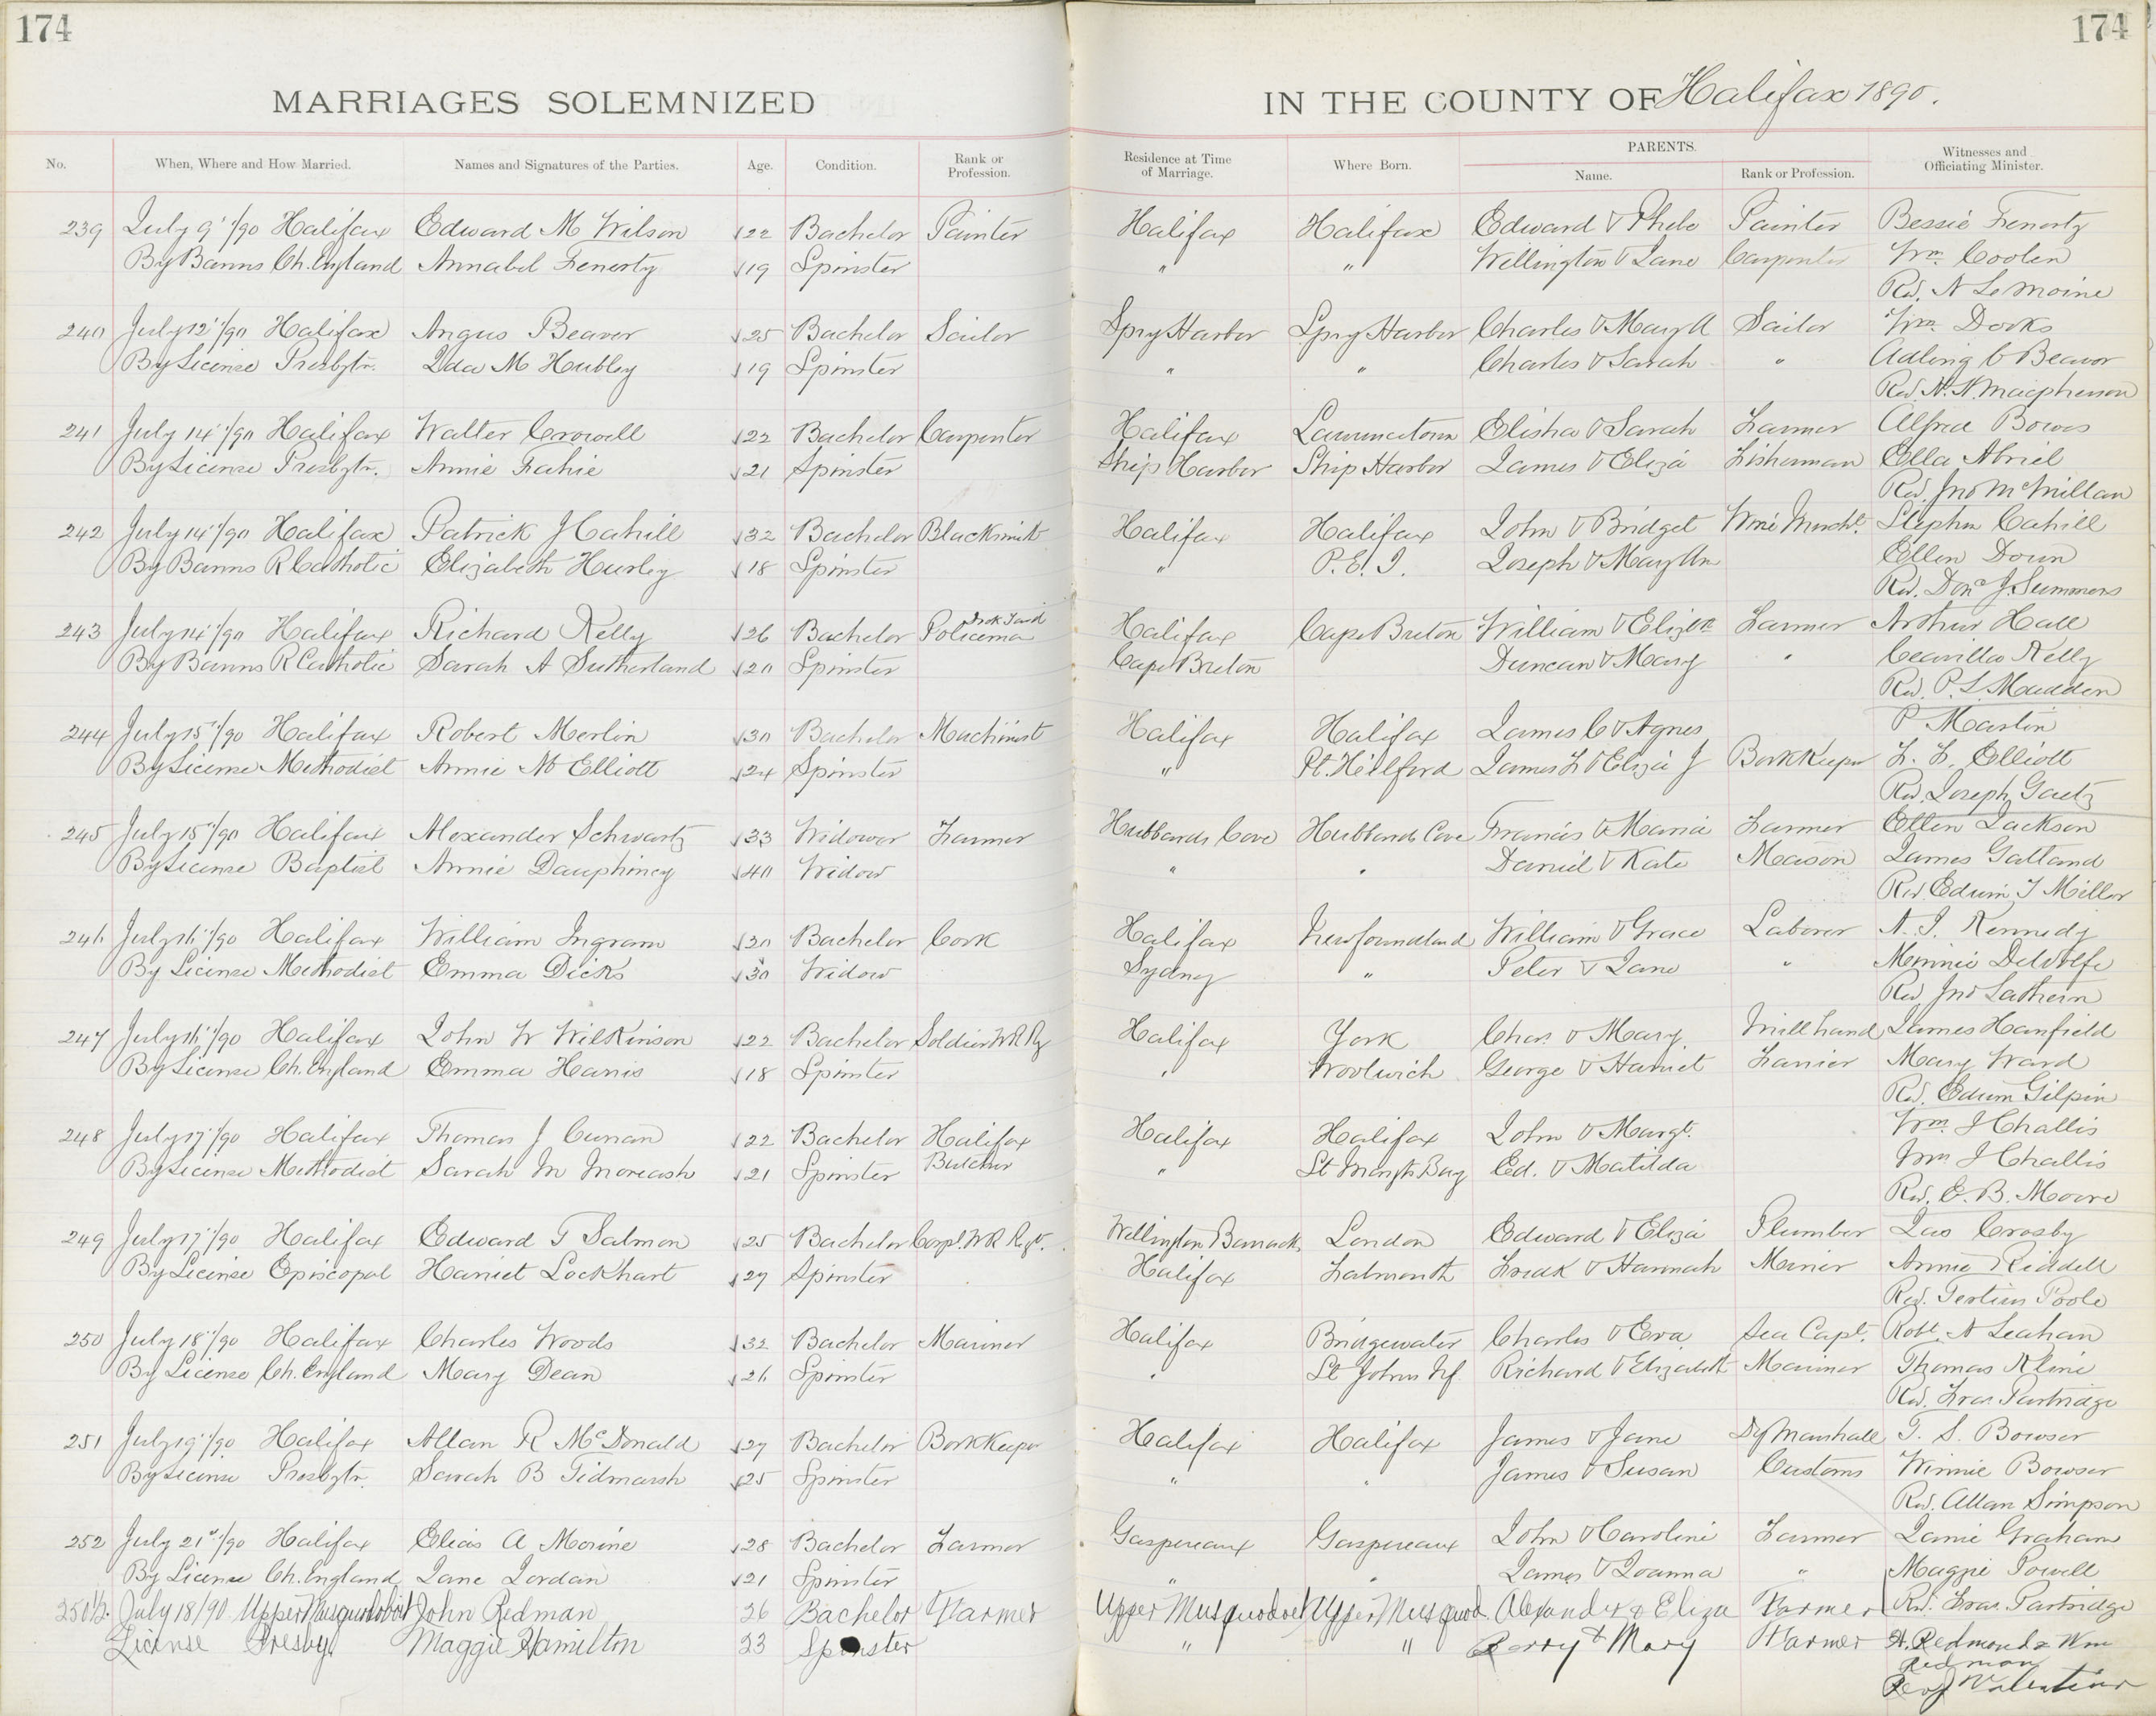 174
174
MARRIAGES SOLEMNIZED IN THE COUNTY OF Halifax 1890.
No. When, Where and How Married. Names and Signatures of the Parties. Age. Condition. Rank or Profession. Residence at Time of Marriage. Where Born. PARENTS. Name. Rank or Profession. Witnesses and Officiating Minister.
239 July 9"/90 Halifax Edward M Wilson 22 Bachelor Painter Halifax Halifax Edward & Phebe Painter Bessie Fenerty
By Banns Ch. England Annabel Fenerty 19 Spinster " " Wellington & Jane Carpenter Wm. Coolen
Rev. N LeMoine
240 July 12"/90 Halifax Angus Beaver 25 Bachelor Sailor Spry Harbor Spry Harbor Charles & Mary A Sailor Wm. Dooks
By License Presbytr. Ida M Hubley 19 Spinster " " Charles & Sarah " Beaver
Rev. Macpherson
241 July 14"/90 Halifax Walter Crowell 22 Bachelor Carpenter Halifax Lawrencetown Elisha & Sarah Farmer Alfred Bowes
By License Presbytr. Annie Fahie 21 Spinster Ship Harbor Ship Harbor James & Eliza Fisherman Ella Abriel
Rev. Jno McMillan
242 July 14"/90 Halifax Patrick J Cahill 32 Bachelor Blacksmith Halifax Halifax John & Bridget Wine Mercht. Stephen Cahill
By Banns R Catholic Elizabeth Hurley 18 Spinster " P.E.I. Joseph & Mary Ann Ellen
Rev. J. Summers
243 July 14"/90 Halifax Richard Kelly 26 Bachelor Dock Yard Policeman Halifax Cape Breton William & Elizth Farmer Arthur Hall
By Banns R Catholic Sarah A Sutherland 20 Spinster Cape Breton Duncan & Mary " Kelly
Rev. P. S. Madden
244 July 15"/90 Halifax Robert Merlin 30 Bachelor Machinist Halifax Halifax James C & Agnes P Martin
By License Methodist Annie M Elliott 24 Spinster " Pt. Hillford James F & Eliza J Book Keeper F. F. Elliott
Rev. Joseph Gaetz
245 July 15"/90 Halifax Alexander Schwartz 33 Widower Farmer Hubbards Cove Hubbards Cove Francis & Maria Farmer Ellen Jackson
By License Baptist Annie Dauphiney 40 Widow " " Daniel & Kate Mason James
Rev. Edwin J Miller
246 July 16"/90 Halifax William Ingram 30 Bachelor Cook Halifax Newfoundland William & Grace Laborer A. J. Kennedy
By License Methodist Emma Dicks 30 Widow Sydney " Peter & Jane " Minnie DeWolfe
Rev Jno Lathern
247 July 16"/90 Halifax John W Wilkinson 22 Bachelor Soldier W R Rg Halifax York Chas. & Mary Mill hand James Hanfield
By License Ch. England Emma Harris 18 Spinster " Woolwich George & Harriet Farrier Mary Ward
Rev. Edwin Gilpin
248 July 17"/90 Halifax Thomas J Curran 22 Bachelor Halifax Halifax Halifax John & Margt. Wm. J Challis
By License Methodist Sarah M Moreash 21 Spinster Butcher " St Margts Bay Ed. & Matilda Wm J Challis
Rev. E. B. Moore
249 July 17"/90 Halifax Edward T Salmon 25 Bachelor Corpl. W R Regt. Wellington Barracks London Edward & Eliza Plumber Jas Crosby
By License Episcopal Harriet Lockhart 27 Spinster Halifax Falmouth Fredk & Hannah Miner Annie Riddell
Rev. Tertius Poole
250 July 18"/90 Halifax Charles Woods 32 Bachelor Mariner Halifax Bridgewater Charles & Eva Sea Capt. Robt. A Leahan
By License Ch. England Mary Dean 26 Spinster " St Johns Nf. Richard & Elizabeth Mariner Thomas Kline
Rev. Fras. Partridge
251 July 19"/90 Halifax Allan R McDonald 27 Bachelor Book Keeper Halifax Halifax James & Jane Dy Marshall T. S. Bowser
By License Presbytr. Sarah B Tidmarsh 25 Spinster " " James & Susan Customs Winnie Bowser
Rev. Allan Simpson
252 July 21"/90 Halifax Elias A Morine 28 Bachelor Farmer Gaspereaux Gaspereaux John & Caroline Farmer Jamie Graham
By License Ch. England Jane Jordan 21 Spinster " " James & Joanna " Maggie Powell
Rev. Fras. Partridge
250½. July 18/90 Upper Musquodoboit John Redman 26 Bachelor Farmer Upper Musquodoboit Upper Musquod. Alexander & Eliza Farmer
License Presby. Maggie Hamilton 23 Spinster " " & Mary Farmer A. Redmond & Wm
Redman
Rev J Valentine